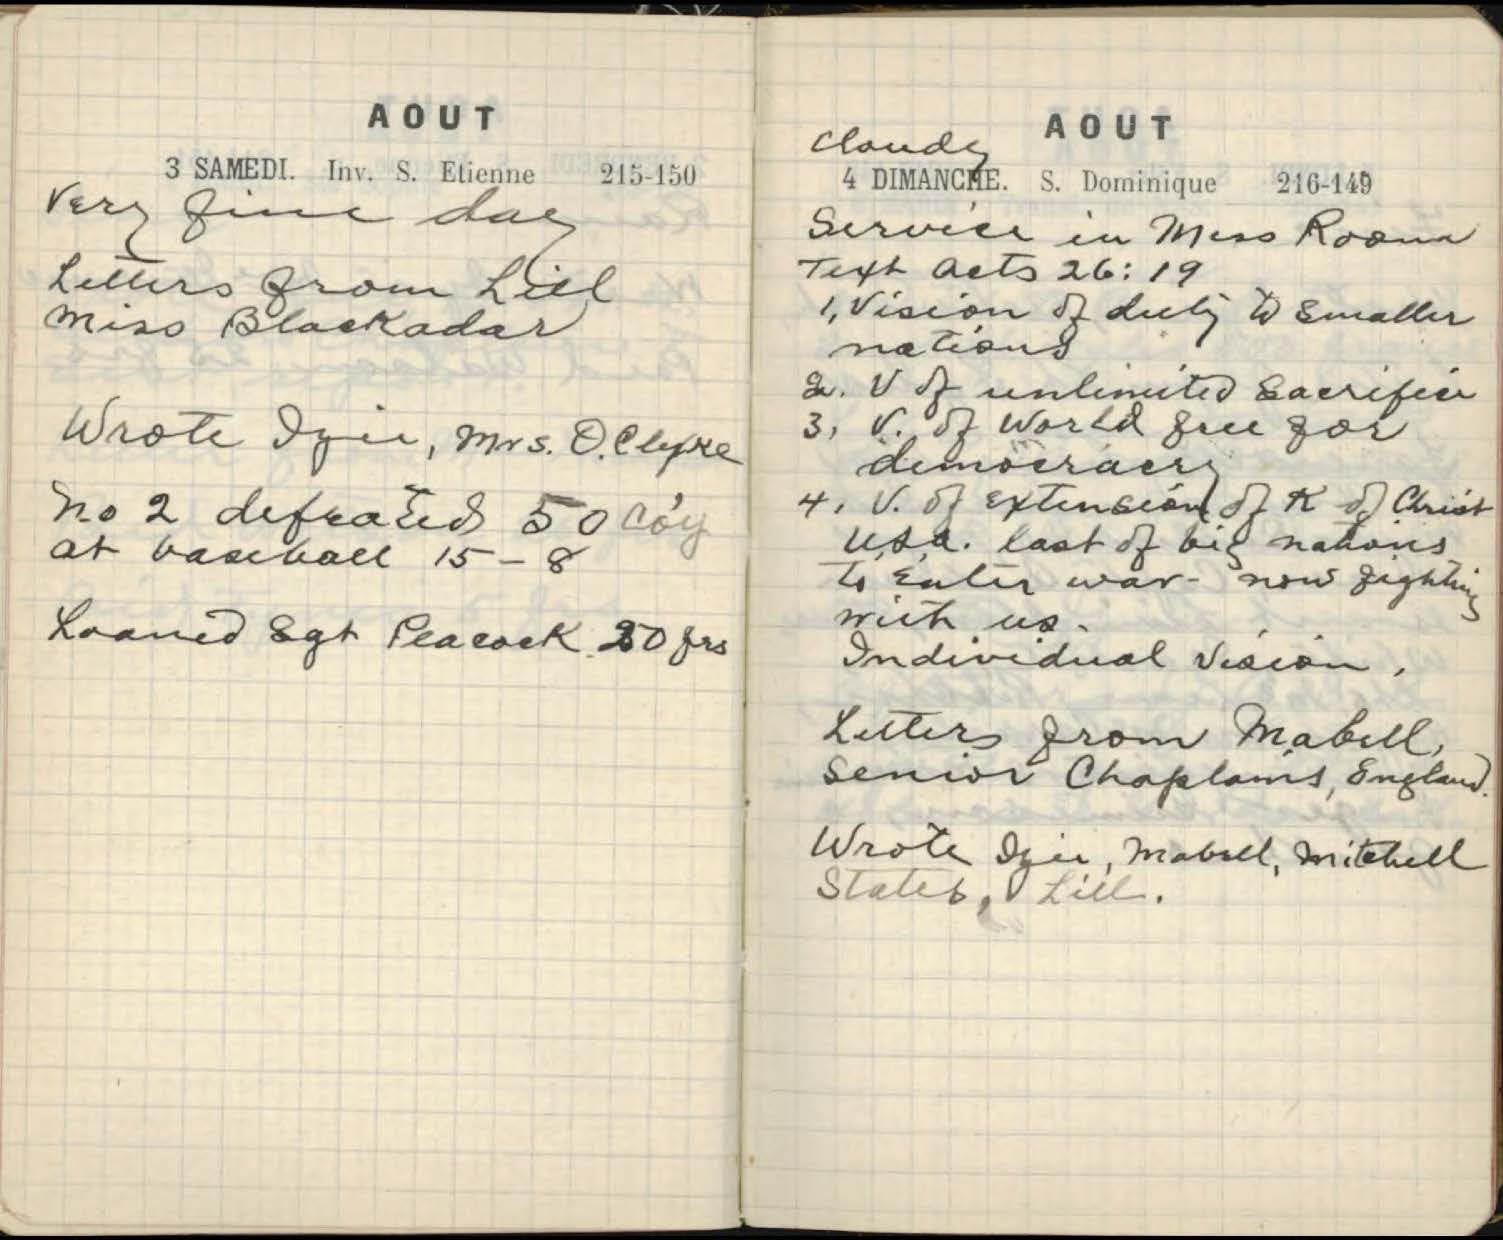 AOUT
3 SAMEDI. Inv. S. Etienne 215-150
Very fine day
Letters from Lill
Miss Blackadar
Wrote Izie, Mrs. O. Clyke
No 2 defeated 50 Co'y
at baseball 15 - 8
Loaned Sgt Peacock 20 frs
AOUT
Cloudy
4 DIMANCHE. S. Dominique 216-149
Service in Mess Room
Text Acts 26:19
1, Vision of duty to smaller
nations
2. V of unlimited Sacrifice
3, V. of World free for
democracy
4, V. of extension of K of Christ
U.S.A. last of big nations
to enter war - now fighting
with us.
Individual Vision.
Letters from Mabell,
Senior Chaplains, England.
Wrote Izie, Mabell, Mitchell
States, Lill.